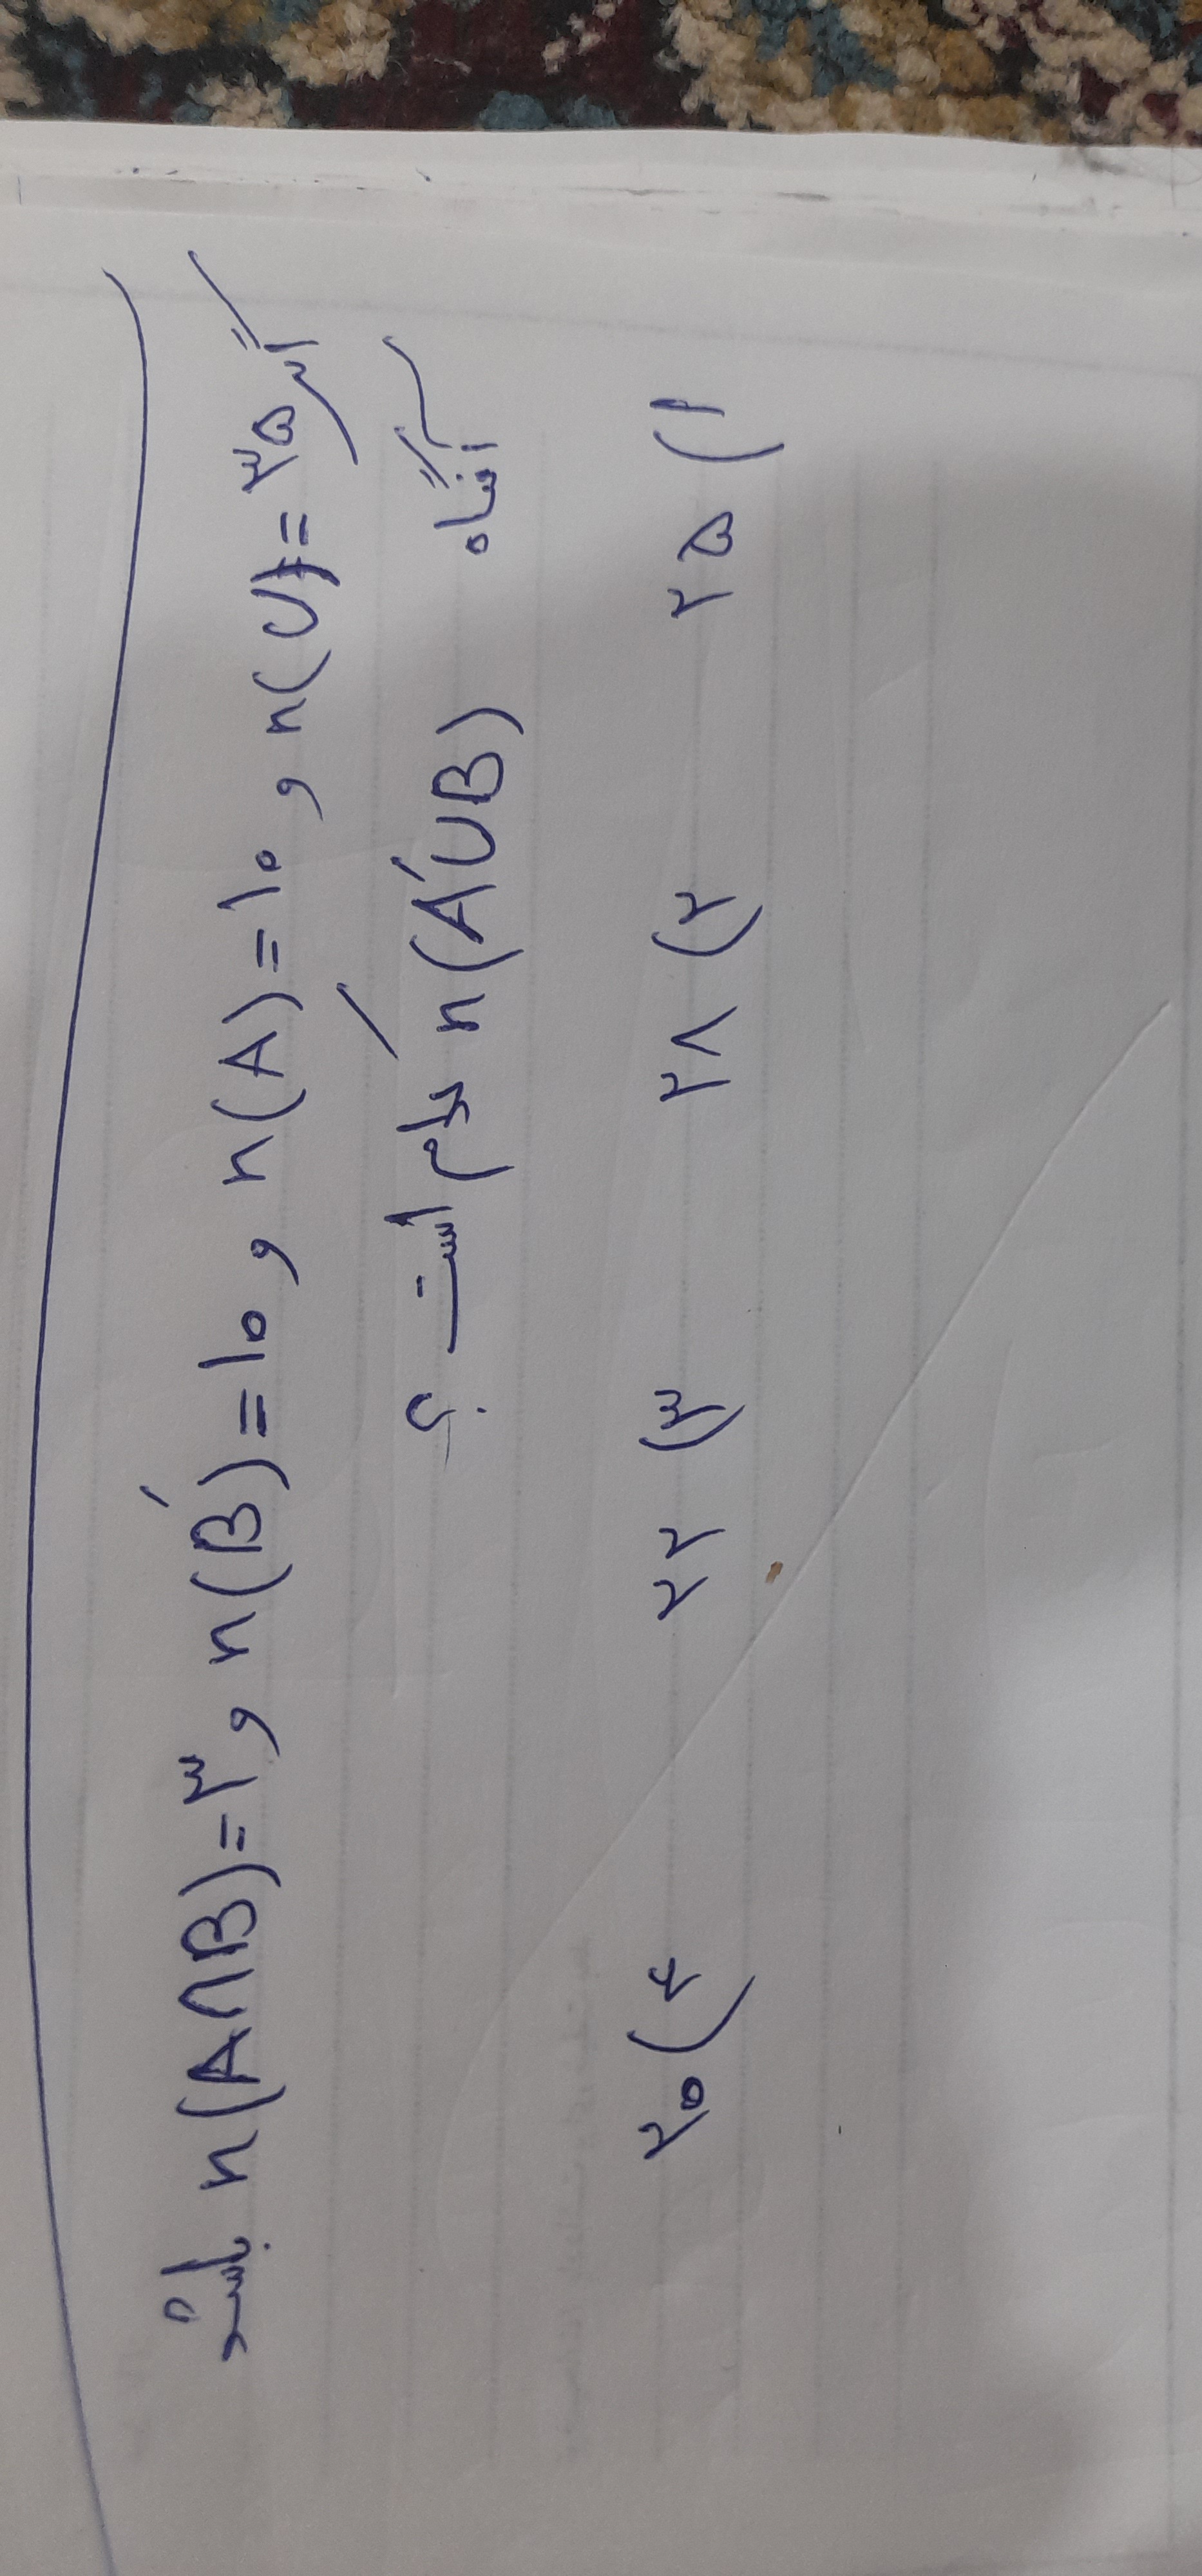 اگر n(U)=۳۵ و n(A)=۱۰ و n(B′)=۱۰ و n(A∩B)=۳ باشد
آنگاه n(A′∪B) کدام است ؟
۱) ۲۵ ۲) ۲۸ ۳) ۲۲ ۴) ۲۰